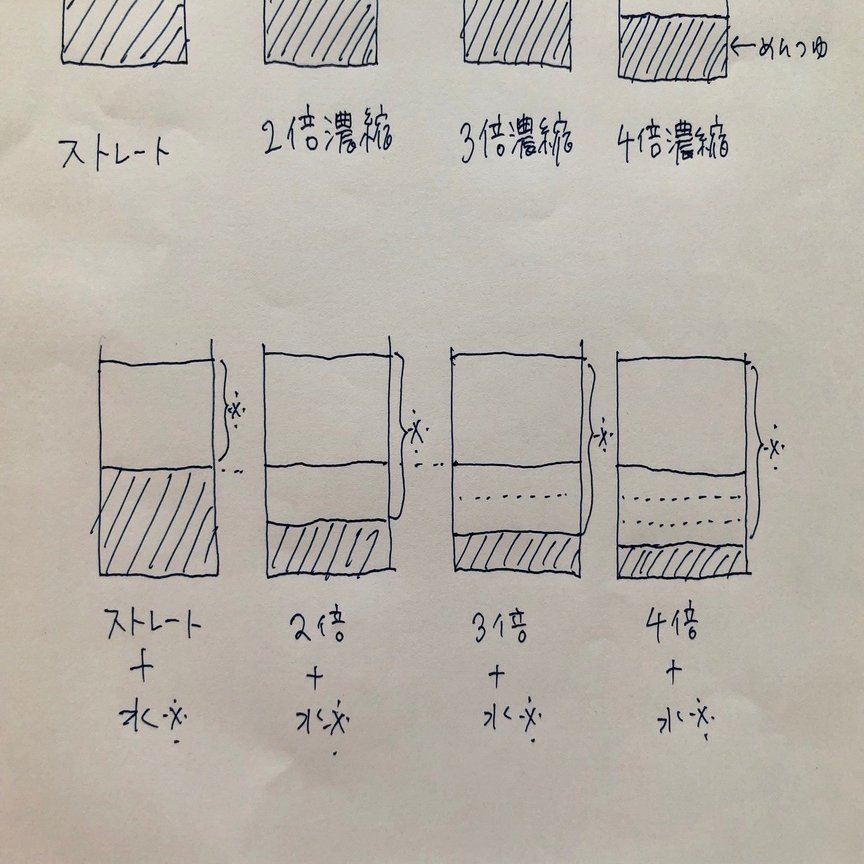 ←めんつゆ
ストレート 2倍濃縮 3倍濃縮 4倍濃縮
※ ※ ※ ※
ストレート 2倍 3倍 4倍
+ + + +
水※ 水※ 水※ 水※